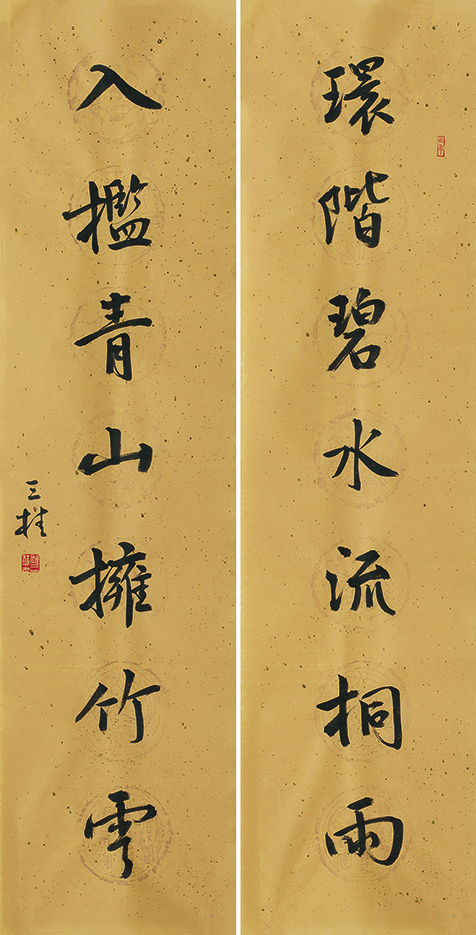 環階碧水流桐雨
入檻青山擁竹雲